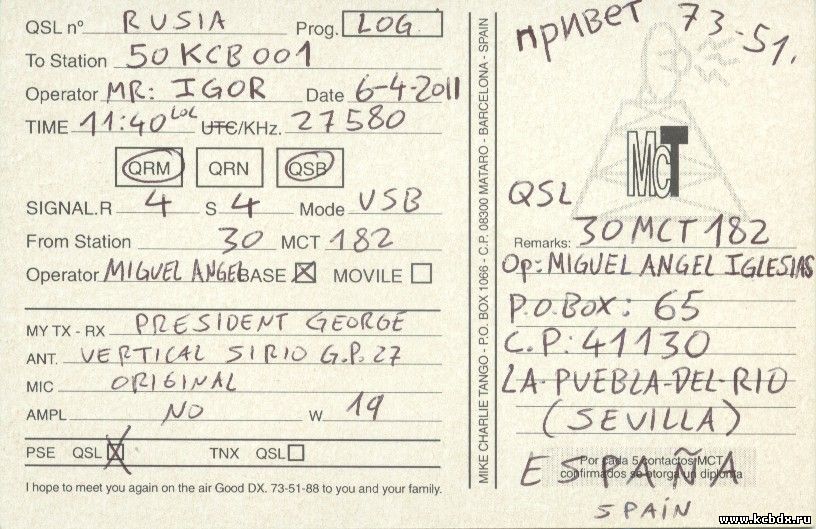 QSL nº RUSIA Prog. LOG
To Station 50 KCB 001
Operator MR: IGOR Date 6-4-2011
TIME 11:40 LOL UTC/KHz. 27580
QRM QRN QSB
SIGNAL.R 4 S 4 Mode USB
From Station 30 MCT 182
Operator MIGUEL ANGEL BASE MOVILE
MY TX - RX PRESIDENT GEORGE
ANT. VERTICAL SIRIO G.P. 27
MIC ORIGINAL
AMPL NO W 19
PSE QSL TNX QSL
I hope to meet you again on the air Good DX. 73-51-88 to you and your family.
MIKE CHARLIE TANGO - P.O. BOX 1066 - C.P. 08300 MATARO - BARCELONA - SPAIN
привет 73-51.
McT
QSL
Remarks: 30 MCT 182
Op: MIGUEL ANGEL IGLESIAS
P.O. BOX: 65
C.P: 41130
LA-PUEBLA-DEL-RIO
(SEVILLA)
ESPAÑA
Por cada 5 contactos MCT
confirmados se otorga un diploma
SPAIN
www.kcbdx.ru